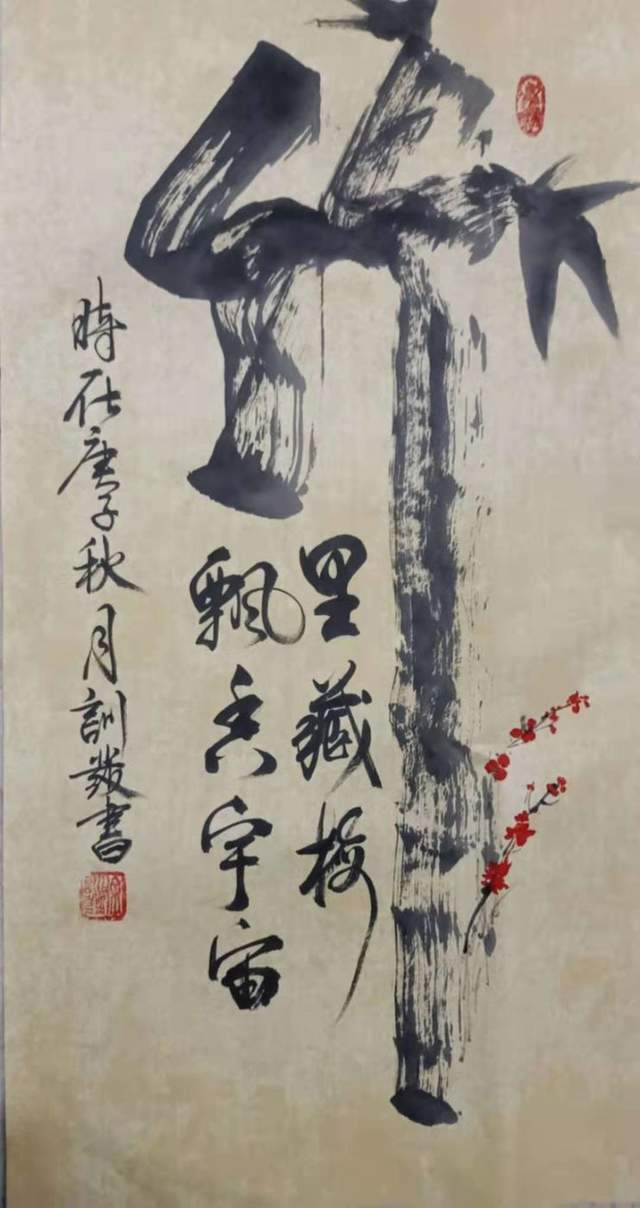 竹
里藏梅
飘香宇宙
時在庚子秋月訓發書